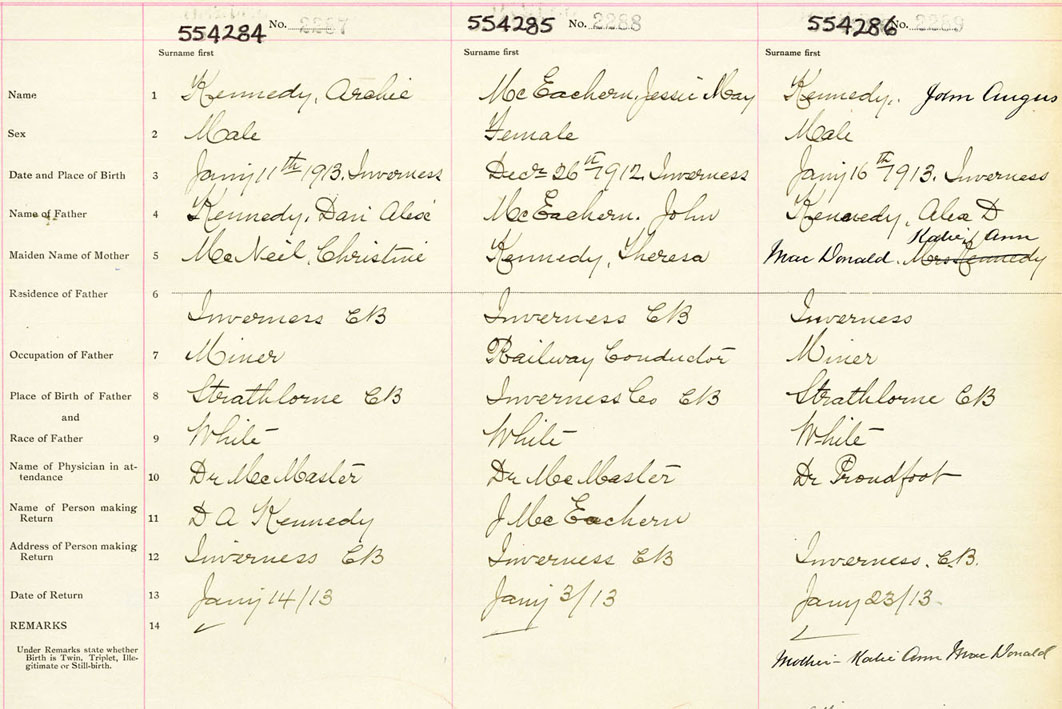 554284 No. 2287 554285 No. 2288 554286 No. 2289
Surname first Surname first Surname first
Name 1 Kennedy, Archie McEachern, Jessie May Kennedy, John Angus
Sex 2 Male Female Male
Date and Place of Birth 3 Jany 11th 1913. Inverness Decr 26th 1912. Inverness Jany 16th 1913. Inverness
Name of Father 4 Kennedy, Dan Alexr McEachern. John Kennedy, Alex D
Katie Ann
Maiden Name of Mother 5 McNeil, Christine Kennedy, Theresa Mac Donald. Mrs Kennedy
Residence of Father 6
Inverness CB Inverness CB Inverness
Occupation of Father 7 Miner Railway Conductor Miner
Place of Birth of Father 8 Strathlorne CB Inverness Co CB Strathlorne CB
and
Race of Father 9 White White White
Name of Physician in at-
tendance 10 Dr McMaster Dr McMaster Dr Proudfoot
Name of Person making
Return 11 D A Kennedy J McEachern
Address of Person making
Return 12 Inverness CB Inverness CB Inverness. C.B.
Date of Return 13 Jany 14/13 Jany 3/13 Jany 23/13
REMARKS 14
Under Remarks state whether
Birth is Twin, Triplet, Ille-
gitimate or Still-birth.
Mother - Katie Ann Mac Donald